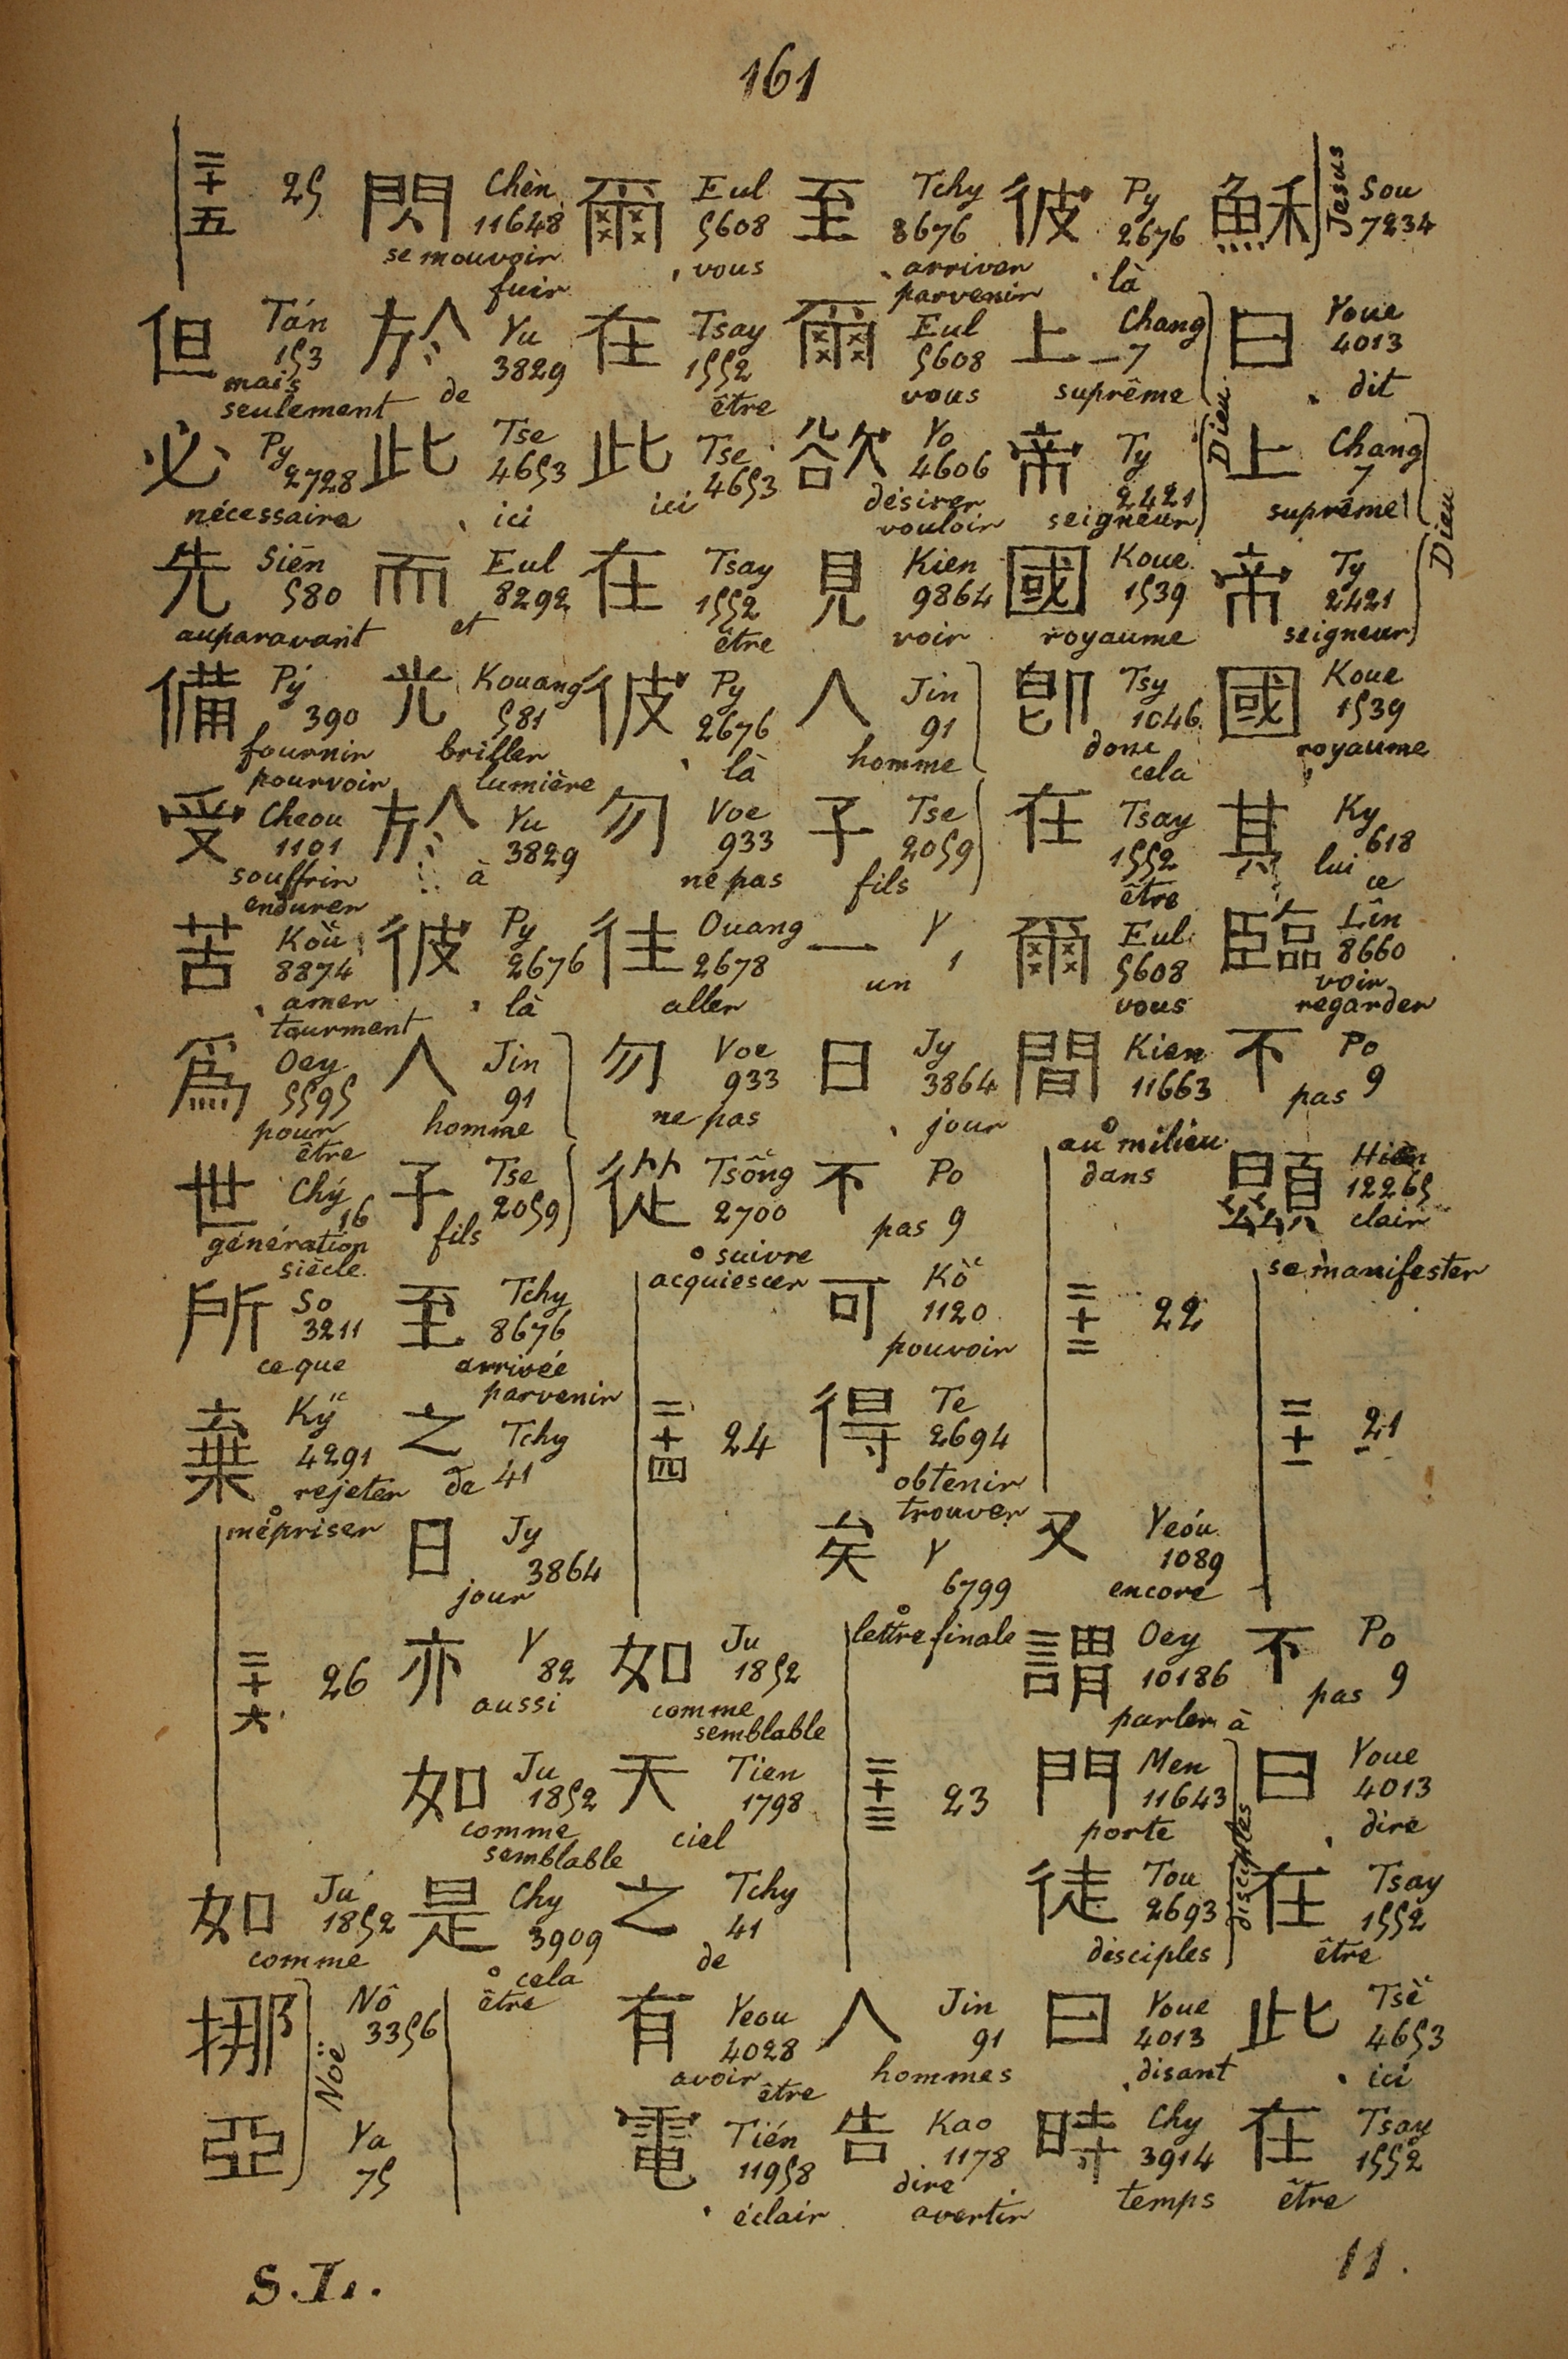 161
穌 Sou 7234
Jesus
曰 Youe 4013 dit
上 Chang 7 suprême
帝 Ty 2421 seigneur
Dieu
國 Koue 1539 royaume
其 Ky 618 lui ce
臨 Lîn 8660 voir regarder
不 Po 9 pas
顯 Hièn 12265 clair se manifester
二十一 21
不 Po 9 pas
曰 Youe 4013 dire
在 Tsay 1552 être
此 Tsè 4653 ici
在 Tsay 1552 être
彼 Py 2676 là
上 Chang 7 suprême
帝 Ty 2421 seigneur
Dieu
國 Koue 1539 royaume
卽 Tsy 1046 donc cela
在 Tsay 1552 être
爾 Eul 5608 vous
間 Kien 11663 au milieu dans
二十二 22
又 Yeóu 1089 encore
謂 Oey 10186 parler à
門 Men 11643 porte
徒 Tou 2693 disciples
disciples
曰 Youe 4013 disant
時 Chy 3914 temps
至 Tchy 8676 arriver parvenir
爾 Eul 5608 vous
欲 Yo 4606 désirer vouloir
見 Kien 9864 voir
人 Jin 91 homme
子 Tse 2059 fils
一 Y 1 un
日 Jy 3864 jour
不 Po 9 pas
可 Kŏ 1120 pouvoir
得 Te 2694 obtenir trouver
矣 Y 6799 lettre finale
二十三 23
人 Jin 91 hommes
告 Kao 1178 dire avertir
爾 Eul 5608 vous
在 Tsay 1552 être
此 Tse 4653 ici
在 Tsay 1552 être
彼 Py 2676 là
勿 Voe 933 ne pas
往 Ouang 2678 aller
勿 Voe 933 ne pas
從 Tsông 2700 suivre acquiescer
二十四 24
如 Ju 1852 comme semblable
天 Tien 1798 ciel
之 Tchy 41 de
有 Yeou 4028 avoir être
電 Tién 11958 éclair
閃 Chèn 11648 se mouvoir fuir
於 Yu 3829 de
此 Tse 4653 ici
而 Eul 8292 et
光 Kouang 581 briller lumière
於 Yu 3829 à
彼 Py 2676 là
人 Jin 91 homme
子 Tse 2059 fils
至 Tchy 8676 arrivée parvenir
之 Tchy 41 de
日 Jy 3864 jour
亦 Y 82 aussi
如 Ju 1852 comme semblable
是 Chy 3909 cela être
二十五 25
但 Tán 153 mais seulement
必 Py 2728 nécessaire
先 Siēn 580 auparavant
備 Pý 390 fournir pourvoir
受 Cheou 1101 souffrir endurer
苦 Koù 8874 amer tourment
爲 Oey 5595 pour être
世 Chý 16 génération siècle
所 So 3211 ce que
棄 Ký 4291 rejeter mépriser
二十六 26
如 Jú 1852 comme
挪 Nô 3356
亞 Ya 75
Noë
S.L.
11.